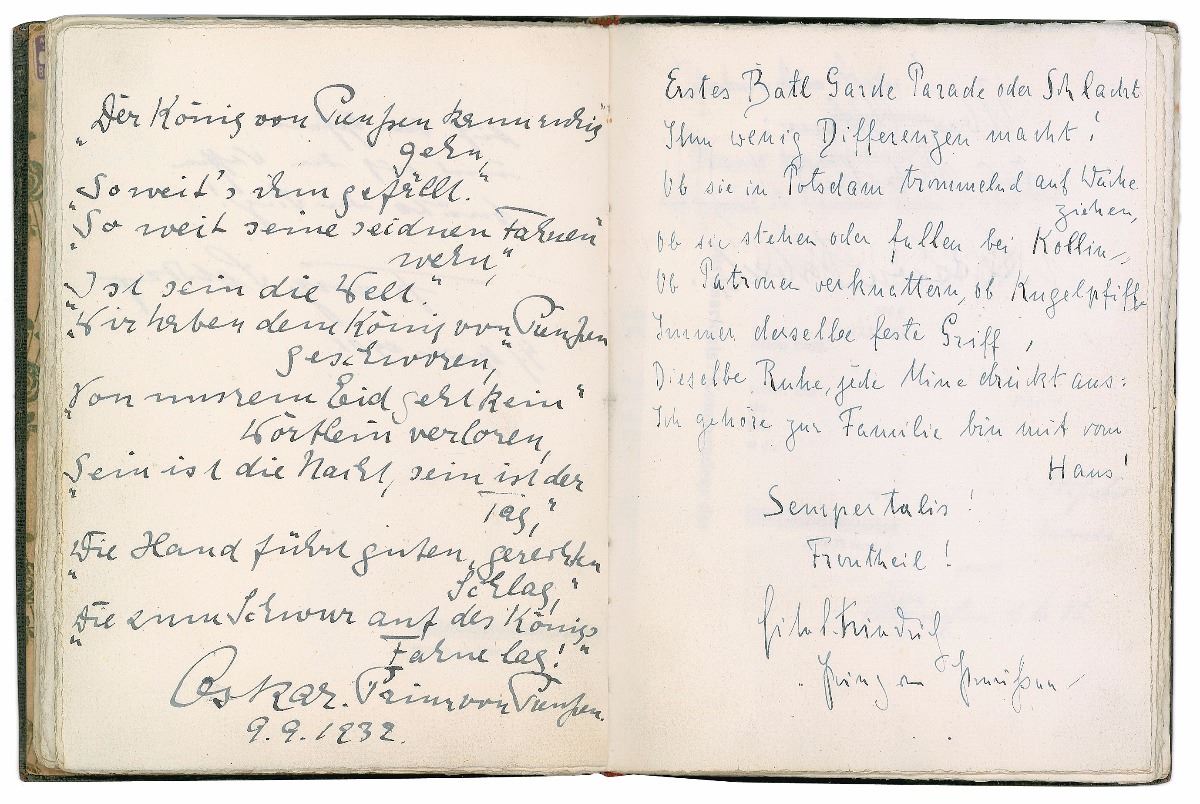 „Der König von Preußen kann ruhig"
gehn,
„So weit's ihm gefällt."
„So weit seine seidnen Fahnen"
wehn,"
„Ist sein die Welt."
„Wir haben dem König von Preußen
geschworen,"
„Von unsrem Eid geht kein"
Wörtlein verloren,
„Sein ist die Nacht, sein ist der
Tag,"
„Die Hand führt guten, gerechten
Schlag,"
„Die zum Schwur auf des Königs
Fahne lag!"
Oskar. Prinz von Preußen.
9.9.1932.
Erstes Batl Garde Parade oder Schlacht
Ihm wenig Differenzen macht!
Ob sie in Potsdam trommelnd auf Wache
ziehen,
Ob sie stehen oder fallen bei Kollin,
Ob Patronen verknattern, ob Kugelpfiffe
Immer derselbe feste Griff,
Dieselbe Ruhe, jede Mine drückt aus:
Ich gehöre zur Familie bin mit vom
Haus!
Semper talis!
Frontheil!
Eitel Friedrich
Prinz von Preußen